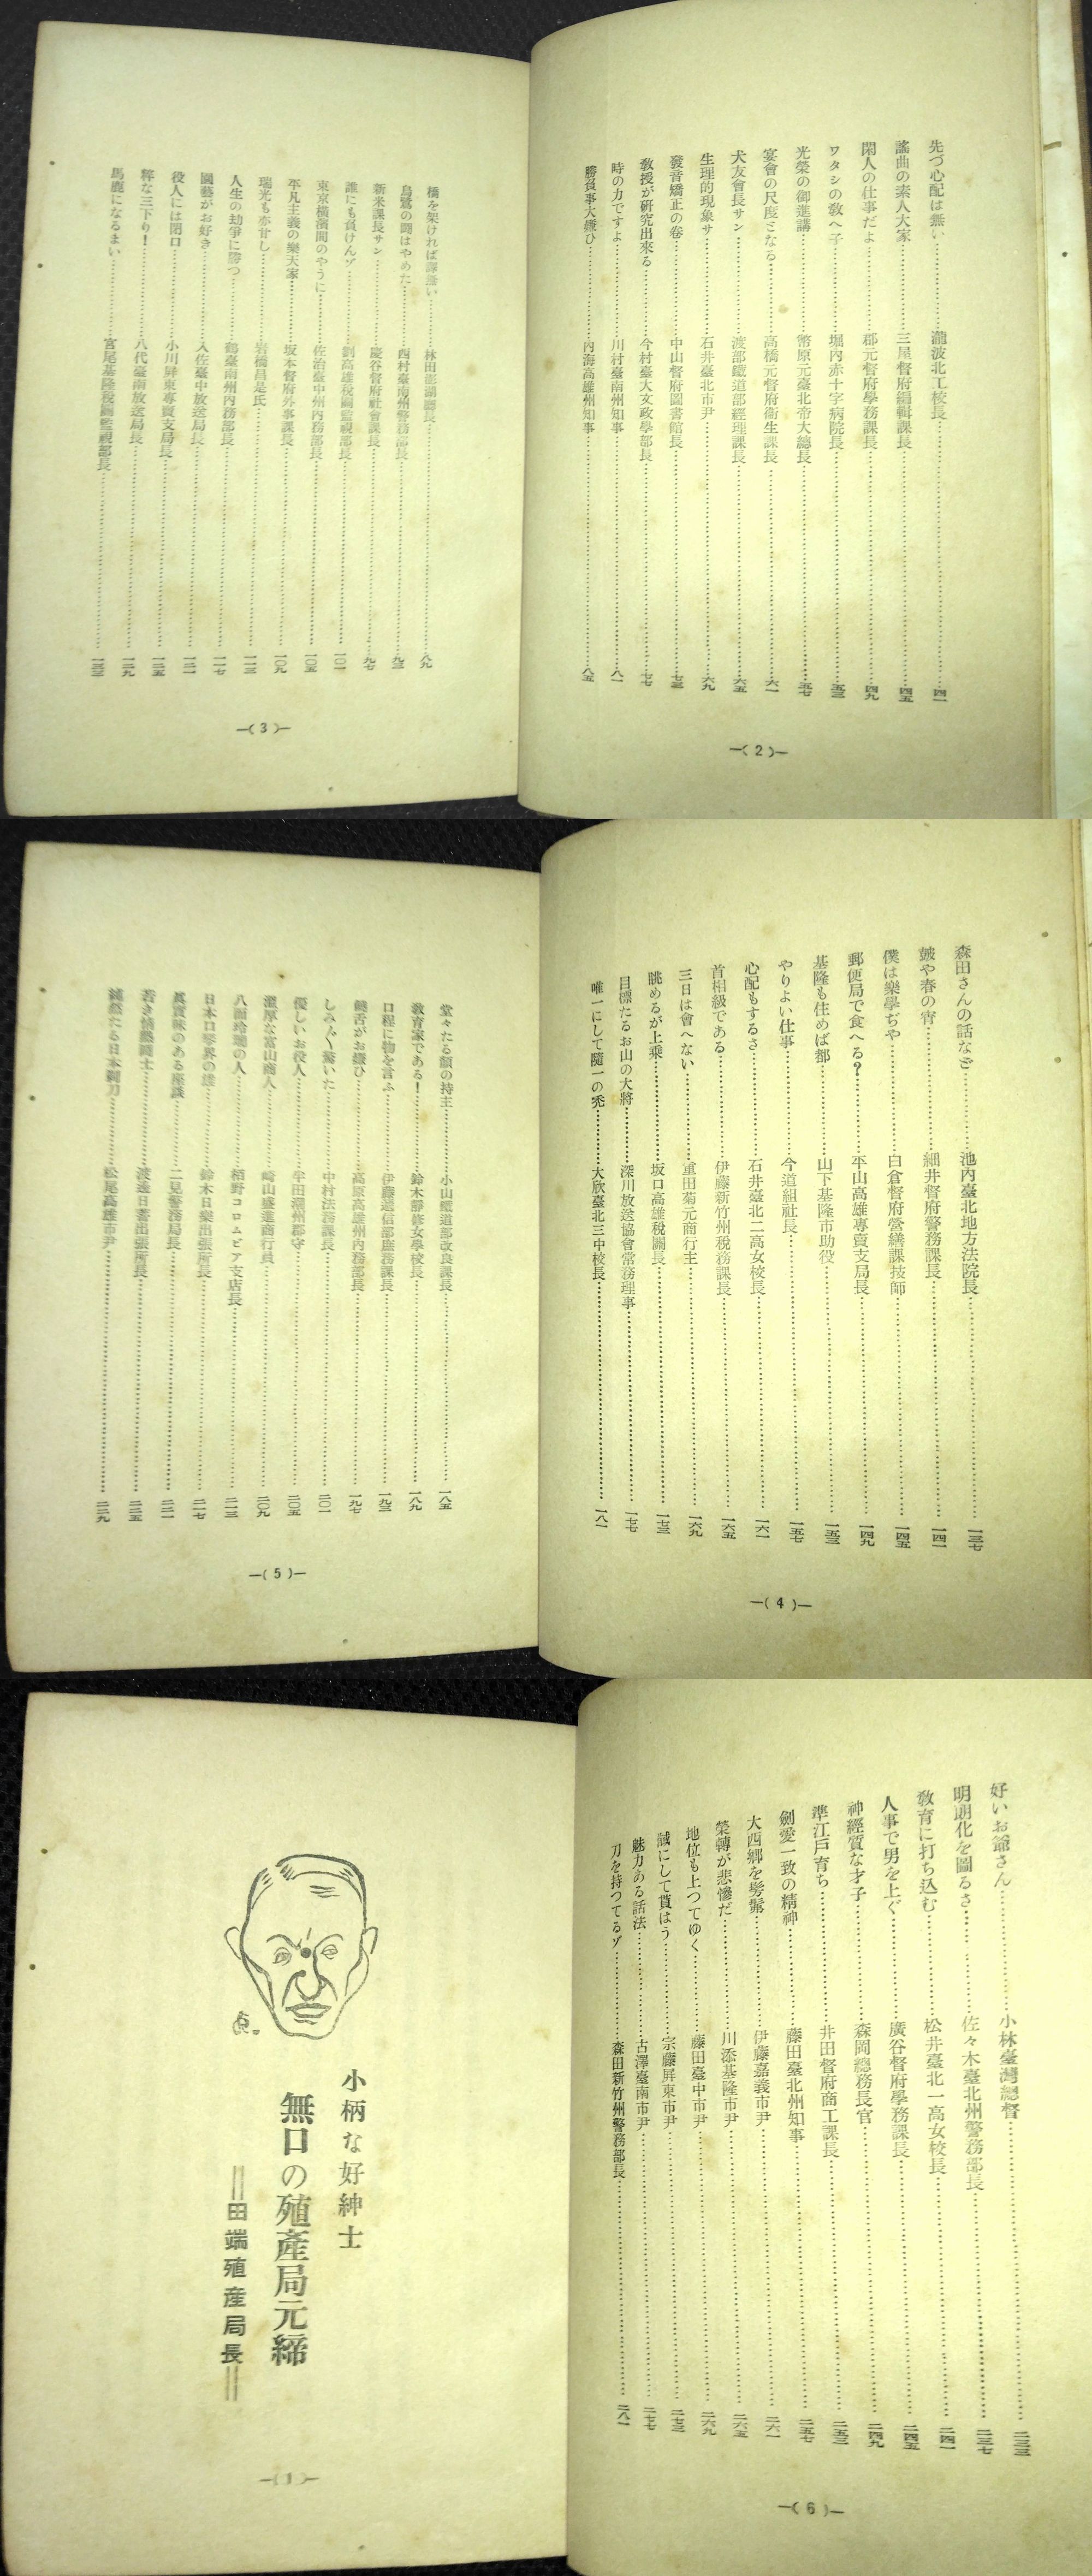 先づ心配は無い……………瀧波北工校長……………四一
謠曲の素人大家……………三屋督府編輯課長……………四五
閑人の仕事だよ……………郡元督府學務課長……………四九
ワタシの敎へ子……………堀内赤十字病院長……………五三
光榮の御進講……………幣原元臺北帝大總長……………五七
宴會の尺度となる……………高橋元督府衛生課長……………六一
犬友會長サン……………渡部鐵道部經理課長……………六五
生理的現象サ……………石井臺北市尹……………六九
發音矯正の卷……………中山督府圖書館長……………七三
敎授が研究出來る……………今村臺大文政學部長……………七七
時の力ですよ……………川村臺南州知事……………八一
勝負事大嫌ひ……………内海高雄州知事……………八五
—( 2 )—
橋を架ければ譯無い……………林田澎湖廳長……………八九
烏鷺の鬪はやめた……………西村臺南州警務部長……………九三
新米課長サン……………慶谷督府社會課長……………九七
誰にも負けんゾ……………劉高雄稅關監視部長……………一〇一
東京橫濱間のやうに……………佐治臺中州内務部長……………一〇五
平凡主義の樂天家……………坂本督府外事課長……………一〇九
瑞光も亦甘し……………岩橋昌是氏……………一一三
人生の劫爭に勝つ……………鶴臺南州内務部長……………一一七
園藝がお好き……………入佐臺中放送局長……………一二一
役人には閉口……………小川屛東專賣支局長……………一二五
粹な三下り！……………八代臺南放送局長……………一二九
馬鹿になるまい……………宮尾基隆稅關監視部長……………一三三
—( 3 )—
森田さんの話など……………池内臺北地方法院長……………一三七
皷や春の宵……………細井督府警務課長……………一四一
僕は樂學ぢや……………白倉督府營繕課技師……………一四五
郵便局で食へる？……………平山高雄專賣支局長……………一四九
基隆も住めば都……………山下基隆市助役……………一五三
やりよい仕事……………今道組社長……………一五七
心配もするさ……………石井臺北二高女校長……………一六一
首相級である……………伊藤新竹州稅務課長……………一六五
三日は會へない……………重田菊元商行主……………一六九
眺めるが上乗……………坂口高雄稅關長……………一七三
目標たるお山の大將……………深川放送協會常務理事……………一七七
唯一にして隨一の禿……………大欣臺北三中校長……………一八一
—( 4 )—
堂々たる額の持主……………小山鐵道部改良課長……………一八五
敎育家である！……………鈴木靜修女學校長……………一八九
口程に物を言ふ……………伊藤遞信部庶務課長……………一九三
饒舌がお嫌ひ……………高原高雄州内務部長……………一九七
しみ〴〵驚いた……………中村法務課長……………二〇一
優しいお役人……………半田潮州郡守……………二〇五
溫厚な富山商人……………崎山盛進商行員……………二〇九
八面玲瓏の人……………栢野コロムビア支店長……………二一三
日本口琴界の雄……………鈴木日樂出張所長……………二一七
眞實味のある座談……………二見警務局長……………二二一
若き情熱鬪士……………渡邊日蓄出張所長……………二二五
純然たる日本剃刀……………松尾高雄市尹……………二二九
—( 5 )—
好いお爺さん……………小林臺灣總督……………二三三
明朗化を圖るさ……………佐々木臺北州警務部長……………二三七
敎育に打ち込む……………松井臺北一高女校長……………二四一
人事で男を上ぐ……………廣谷督府學務課長……………二四五
神經質な才子……………森岡總務長官……………二四九
準江戸育ち……………井田督府商工課長……………二五三
劍愛一致の精神……………藤田臺北州知事……………二五七
大西鄕を髣髴……………伊藤嘉義市尹……………二六一
榮轉が悲慘だ……………川添基隆市尹……………二六五
地位も上つてゆく……………藤田臺中市尹……………二六九
誠にして貰はう……………宗藤屛東市尹……………二七三
魅力ある話法……………古澤臺南市尹……………二七七
刀を持つてるゾ……………森田新竹州警務部長……………二八一
—( 6 )—
小柄な好紳士
無口の殖產局元締
＝田端殖産局長＝
—( 1 )—